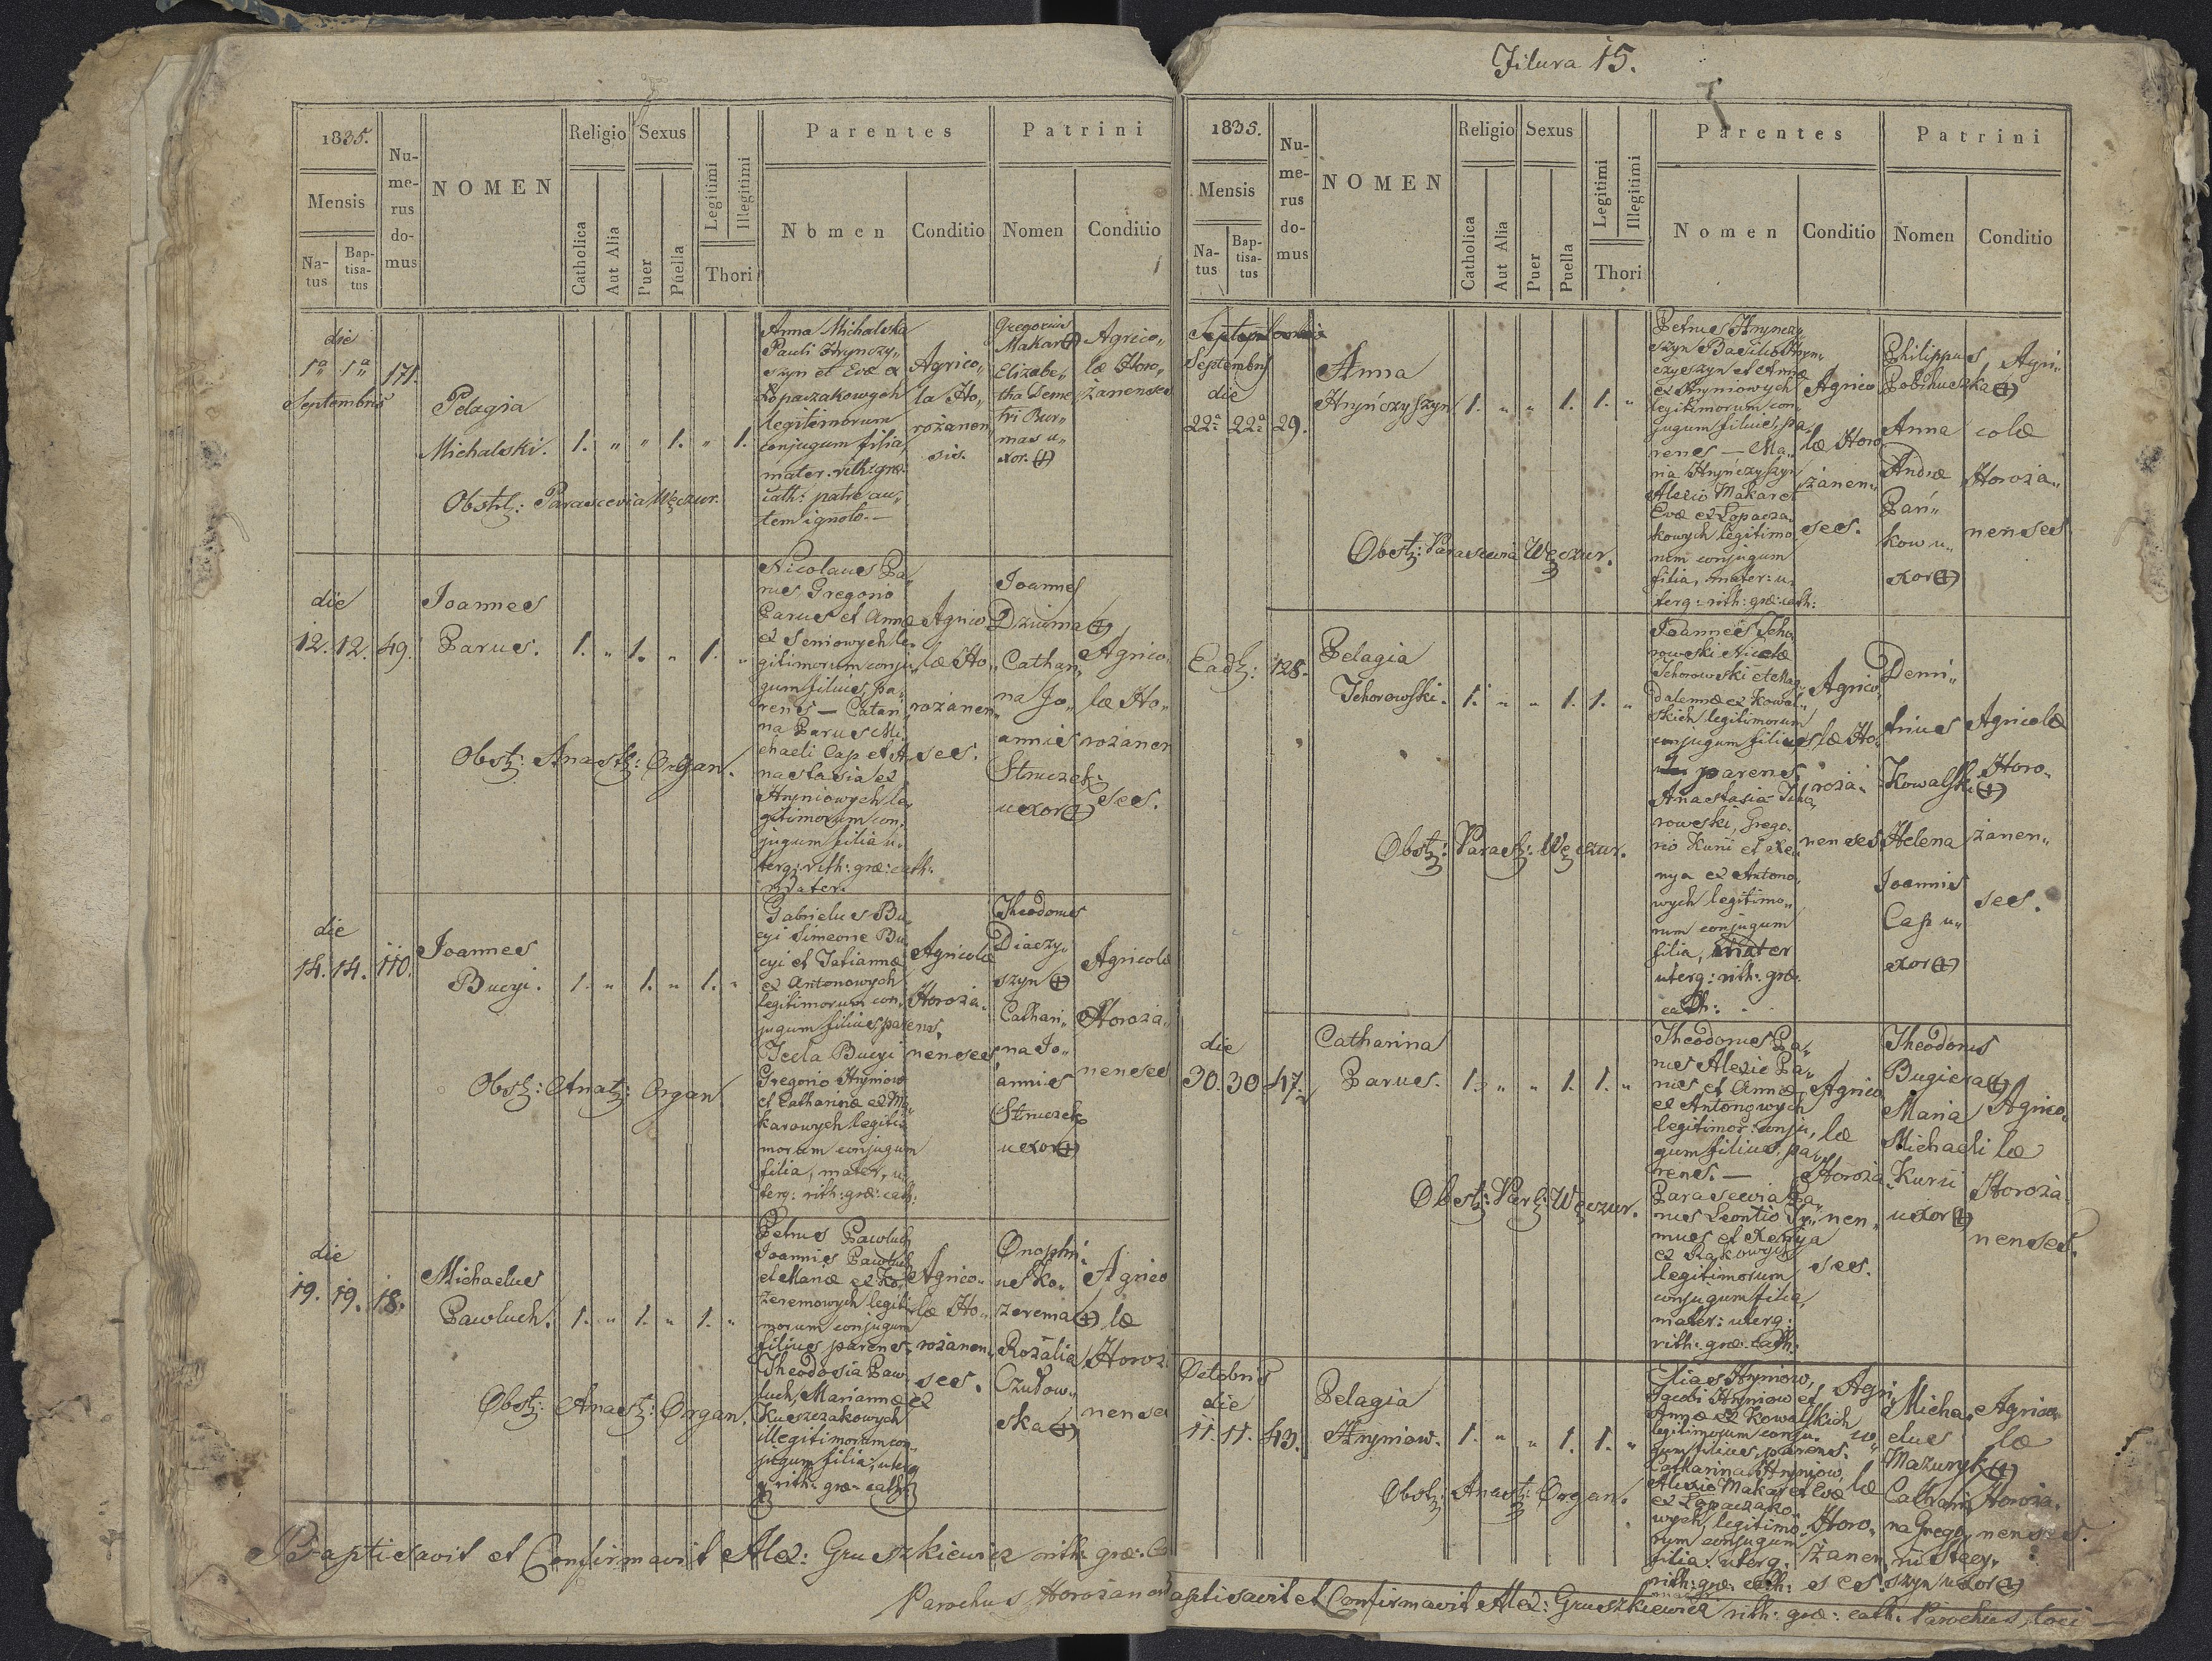 Filura 15.
1835.
Mensis
Na-
tus
Bap-
tisa-
tus
Nu-
me-
rus
do-
mus
NOMEN
Religio
Catholica
Aut Alia
Sexus
Puer
Puella
Legitimi
Illegitimi
Thori
Parentes
Nomen
Conditio
Patrini
Nomen
Conditio
die
1a 1a 171.
Septembris
Pelagia
Michalski. 1. " " 1. " 1.
Obstt: Parascevia Węczur.
Anna Michalska
Pauli Hrynczy„
szyn et Evæ ex
Łopaczakowych
legitimorum
conjugum filia,
mater. rith: græ:
cath: patre au„
tem ignoto.—
Agrico„
la Ho„
rożanen„
sis.
Gregorius
Makar (+)
Elizabe„
tha Deme
tri Bur„
mas u„
xor. (+)
Agrico„
læ Horo„
żanenses
die
12. 12. 49.
Joannes
Barus. 1. " 1. " 1. "
Obst: Anast: Organ.
Nicolaus Ba„
rus Gregorio
Barus et Annæ
ex Seniowych le„
gitimorum conju„
gum filius, pa„
rens — Catari„
na Barus Mi„
chaeli Cap et A„
nastasia ex
Hryniowych le„
gitimorum con„
jugum filia u„
terq: rith: græ: cath:
mater.
Agrico
læ Ho„
rożanen„
ses.
Joannes
Dziuma (+)
Cathari„
na Jo„
annis
Struczek
uxor (+)
Agrico„
læ Ho„
rożanen
ses.
die
14. 14. 110.
Joannes
Bucyi. 1. " 1. " 1. "
Obst: Anast: Organ.
Gabrielus Bu„
cyi Simeone Bu„
cyi et Tatiannæ
ex Antonowych
legitimorum con„
jugum filius parens,
Tecla Bucyi
Gregorio Hryniow
et Catharinæ ex Ma„
karowych legiti„
morum conjugum
filia, mater, u„
terq: rith: græ: cath:
Agricolæ
Horoża„
nenses
Theodorus
Diaczy„
szyn (+)
Cathari„
na Jo„
annis
Struczek
uxor (+)
Agricolæ
Horoża„
nenses
die
19. 19. 18.
Michaelus
Pawluch. 1. " 1. " 1. "
Obst: Anast: Organ.
Petrus Pawluch
Joannis Pawluch
et Mariæ ex Ko„
zeremowych legiti„
morum conjugum
filius, parens.
Theodosia Paw„
luch, Mariannæ ex
Kuszczakowych
illegitimorum con„
jugum filia, uterq
rith: græ: cath:
Agrico„
læ Ho„
rożanen„
ses.
Onophri„
us Ko„
zerema (+)
Rozalia
Czułow„
ska (+)
Agrico
læ
Horoż
nenses
Baptisavit et Confirmavit Alex: Gruszkiewicz rith: græ: Ca
Parochus Horożan
1835.
Mensis
Na-
tus
Bap-
tisa-
tus
Nu-
me-
rus
do-
mus
NOMEN
Religio
Catholica
Aut Alia
Sexus
Puer
Puella
Legitimi
Illegitimi
Thori
Parentes
Nomen
Conditio
Patrini
Nomen
Conditio
Septembris
Septembris
die
22a 22a 29.
Anna
Hryńczyszyn 1. " " 1. 1. "
Obst: Parascevia Węczur.
Petrus Hrynczy
szyn Basilio Hryn„
czyszyn et Annæ
ex Hryniowych
legitimorum con„
jugum filius, pa„
rens — Ma„
ria Hryńczyszyn
Alexio Makar et
Evæ ex Łopacza„
kowych legitimo
rum conjugum
filia, mater: u„
terq: rith: græ: cath:
Agrico
læ Horo
żanen„
ses.
Philippus
Bobihuszka (+)
Anna
Andreæ
Bań„
kow u„
xor (+)
Agri„
colæ
Horoża„
nenses
Eadt: 128.
Pelagia
Tchorowski. 1. " " 1. 1. "
Obst: Parast: Węczur.
Joannes Tcho„
rowski Nicolæ
Tchorowski et Mag„
dalennæ ex Kowal„
skich legitimorum
conjugum filius
parens.
Anastasia Tcho„
rowski, Grego„
rio Kurii et Xe„
nya ex Antono„
wych legitimo„
rum conjugum
filia, mater
uterq: rith: græ:
cath:
Agrico„
læ Ho„
roża„
nenses
Demi„
trius
Kowalski (+)
Helena
Joannis
Cap u„
xor (+)
Agricolæ
Horo„
żanen„
ses.
die
30. 30. 47.
Catharina
Barus. 1. " " 1. 1. "
Obst: Part: Węczur.
Theodorus Ba„
rus Alexie Ba„
rus et Annæ
ex Antonowych
legitimor: conju„
gum filius, pa„
rens.—
Parascevia Ba„
rus Leontio
mus et Xenya
ex Rakowych
legitimorum
conjugum filia,
mater: uterq:
rith: græ: Cath:
Agrico
læ
Horoża
nen„
ses.
Theodorus
Bugiera (+)
Maria
Michaeli
Kurii
uxor (+)
Agrico„
læ
Horoża„
nenses.
Octobris
die
11. 11. 43.
Pelagia
Hryniow. 1. " " 1. 1. "
Obst: Anast: Organ.
Elias Hryniow,
Jacobi Hryniow et
Annæ ex Kowalskich
legitimorum conju„
gum filius, parens.
Catharina Hryniow,
Alexio Makar et Evæ
ex Łopaczako„
wych, legitimo„
rum conjugum
filia. uterq:
rith: græ: cath:
Agri„
co„
læ
Horo„
żanen
ses.
Micha„
elus
Mazuryk (+)
Cathari„
na Grego„
rii Stecy„
szyn uxor (+)
Agrico„
læ
Horoża„
nenses.
aptisavit et Confirmavit Alex: Gruszkiewicz rith: græ: cath: Parochus loci